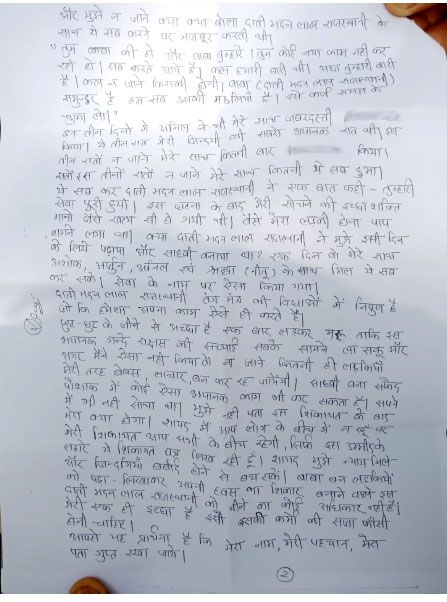 और मुझे न जाने क्या क्या बोला दाती मदन लाल राजस्थानी के
साथ ये सब करने पर मजबूर करती थी।
"तुम बाबा की हो और बाबा तुम्हारे। तुम कोई नया काम नहीं कर
रही हो। सब करते आये हैं। कल हमारी बारी थी। आज तुम्हारी बारी
है। कल न जाने किसकी होगी। बाबा (दाती मदन लाल राजस्थानी)
समुन्द्र है हम सब उसकी मछलियाँ हैं। इसे कर्ज समझ के
चुका लो।"
इन तीन दिनों में अनिल ने भी मेरे साथ जबरदस्ती
किया। ये तीन रात मेरी जिन्दगी की सबसे भयानक रात थी। इन
तीन रातों न जाने मेरे साथ कितनी बार किया।
इन तीन रातों न जाने मेरे साथ कितनी ये सब हुआ।
ये सब कर दाती मदन लाल राजस्थानी ने एक बात कही - तुम्हारी
सेवा पूरी हुयी। इस घटना के बाद मेरी सोचने की इच्छा शक्ति
मानो जैसे खत्म सी हो गयी थी। जैसे मेरा लड़की होना पाप
लगने लगा था। क्या दाती मदन लाल राजस्थानी ने मुझे इसी दिन
के लिये पढ़ाया और साध्वी बनाया था? एक दिन वो मेरे साथ
अशोक, अर्जुन, अनिल एवं श्रद्धा (नीतू) के साथ मिल ये सब
कर सके। सेवा के नाम पर ऐसा किया गया।
दाती मदन लाल राजस्थानी तंत्र मंत्र की विद्याओं में निपुण है
जो कि हमेशा अपना काम ऐसे ही करते हैं।
घुट-घुट के जीने से अच्छा है एक बार लड़कर मरू ताकि इस
भयानक गन्दे राक्षस की सच्चाई सबके सामने ला सकू और
अगर मैंने ऐसा नहीं किया तो ना जाने कितनी ही लड़कियाँ
मेरी तरह बेबस लाचार बन कर रह जायेंगी। साध्वी बना सफेद
पोशाक में कोई ऐसा भयानक काम भी कर सकता है। सपने
में भी नहीं सोचा था। मुझे नहीं पता इस शिकायत के बाद
मेरा क्या होगा। शायद मैं आप लोगों के बीच में न रहूं पर
मेरी शिकायत आप सभी के बीच रहेगी, सिर्फ इस उम्मीद के
सहारे मैं शिकायत पत्र लिख रही हूं। शायद मुझे न्याय मिले
और जिन्दगियां बर्बाद होने से बच सकें। बाबा बन लड़कियों
को पढ़ा-लिखाकर अपनी हवस का शिकार बनाने वाले इस
दाती मदन लाल राजस्थानी को जीने का कोई अधिकार नहीं है।
मेरी एक ही इच्छा है इसे इसके कर्मों की सजा फाँसी
होनी चाहिए।
आपसे यह प्रार्थना है कि मेरा नाम, मेरी पहचान, मेरा
पता गुप्त रखा जाये।
2